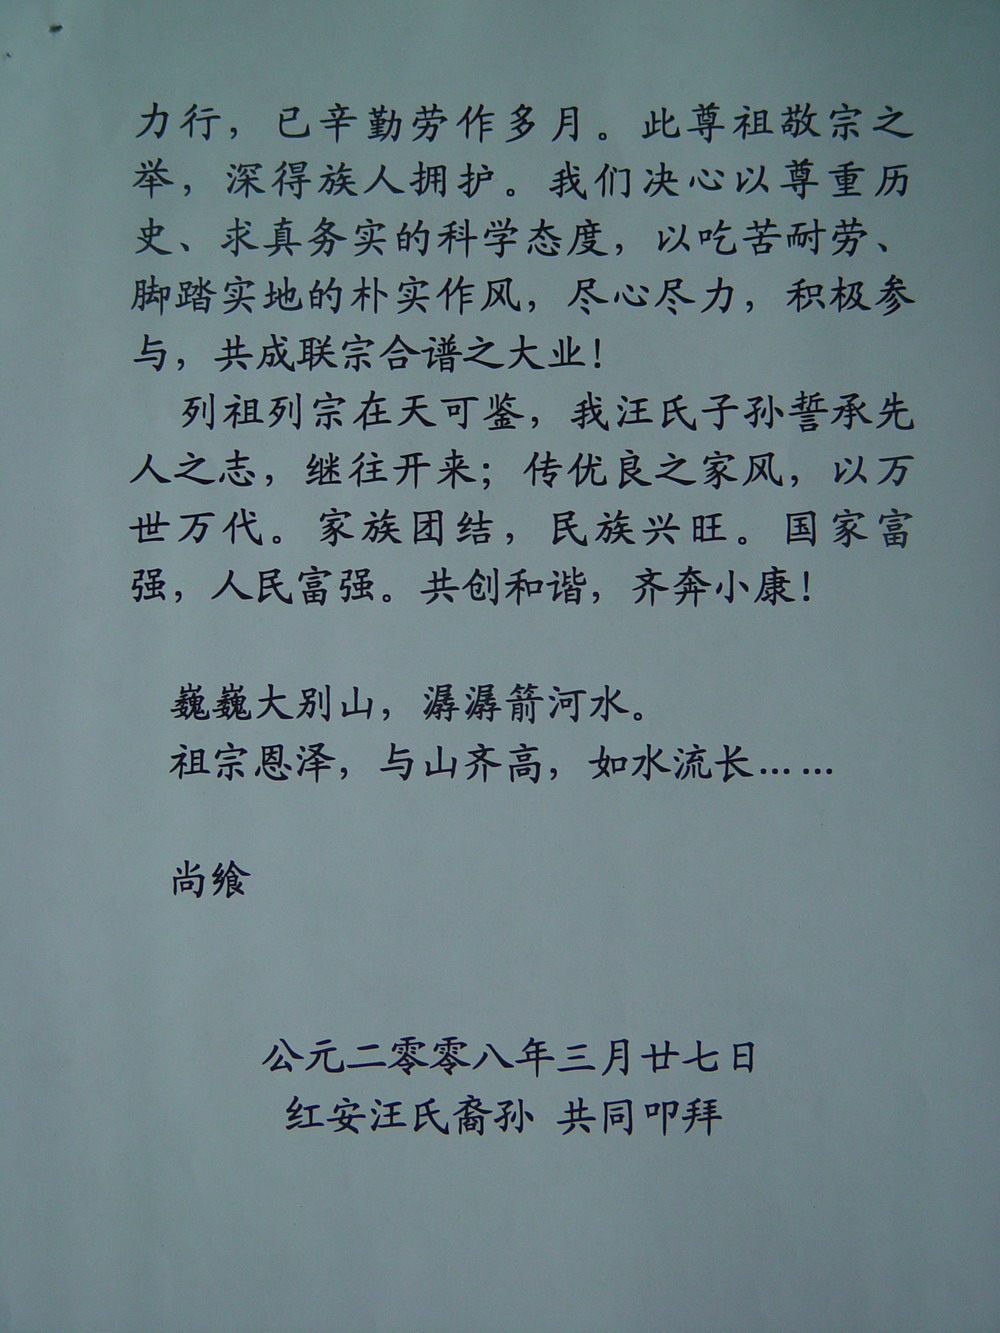 力行，已辛勤劳作多月。此尊祖敬宗之
举，深得族人拥护。我们决心以尊重历
史、求真务实的科学态度，以吃苦耐劳、
脚踏实地的朴实作风，尽心尽力，积极参
与，共成联宗合谱之大业！
列祖列宗在天可鉴，我汪氏子孙誓承先
人之志，继往开来；传优良之家风，以万
世万代。家族团结，民族兴旺。国家富
强，人民富强。共创和谐，齐奔小康！
巍巍大别山，潺潺箭河水。
祖宗恩泽，与山齐高，如水流长……
尚飨
公元二零零八年三月廿七日
红安汪氏裔孙 共同叩拜